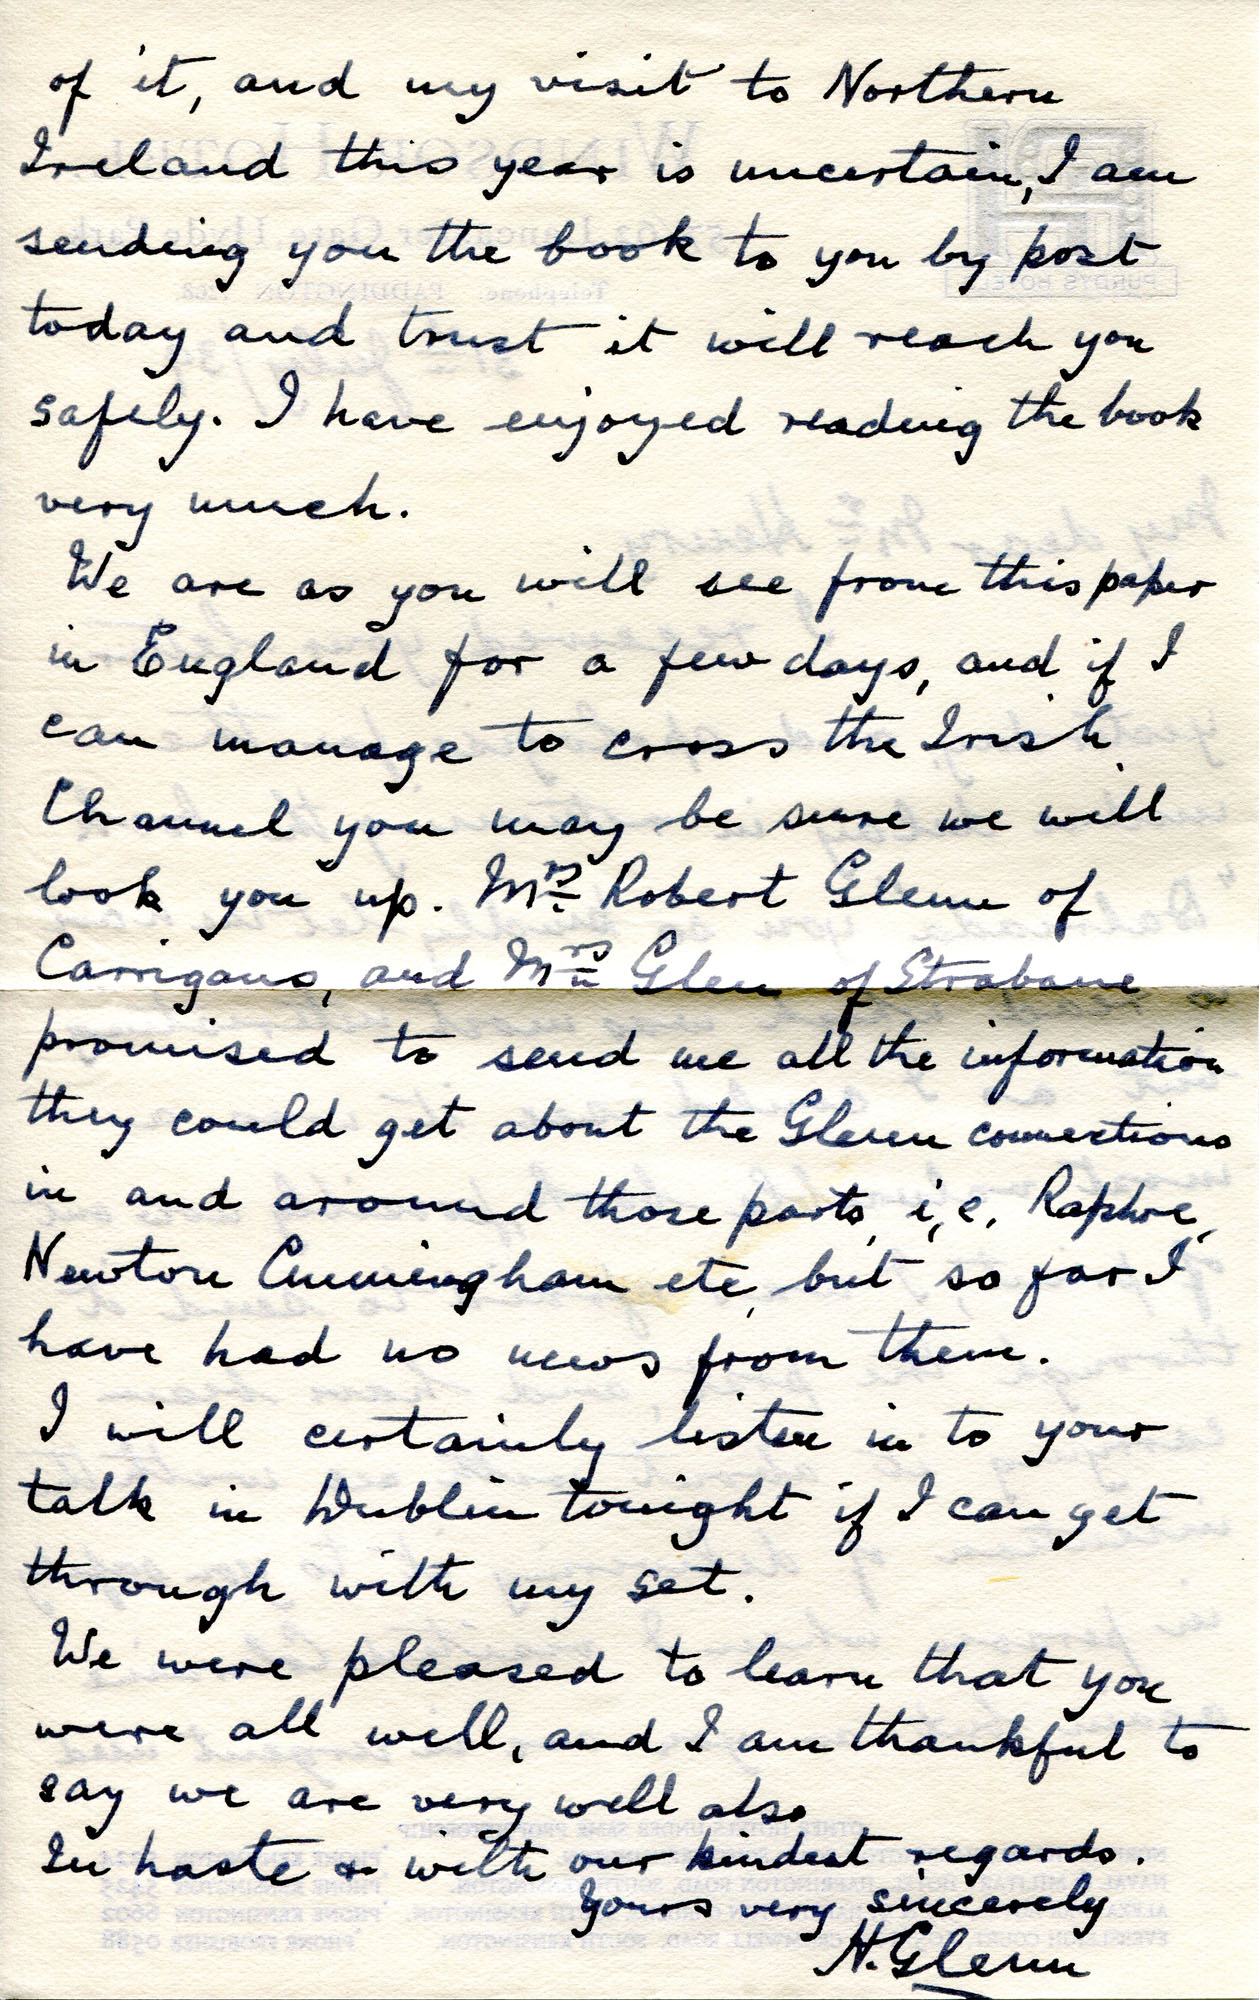 of it, and my visit to Northern
Ireland this year is uncertain, I am
sending you the book to you by post
today and trust it will reach you
safely. I have enjoyed reading the book
very much.
We are as you will see from this paper
in England for a few days, and if I
can manage to cross the Irish
Channel you may be sure we will
look you up. Mrs. Robert Glenn of
Carrigans, and Mrs Glen of Strabane
promised to send me all the information
they could get about the Glenn connections
in and around those parts, i,e, Raphoe,
Newton Cunningham etc, but so far I
have had no news from them.
I will certainly listen in to your
talk in Dublin tonight if I can get
through with my set.
We were pleased to learn that you
were all well, and I am thankful to
say we are very well also
In haste & with our kindest regards.
Yours very sincerely
H. Glenn